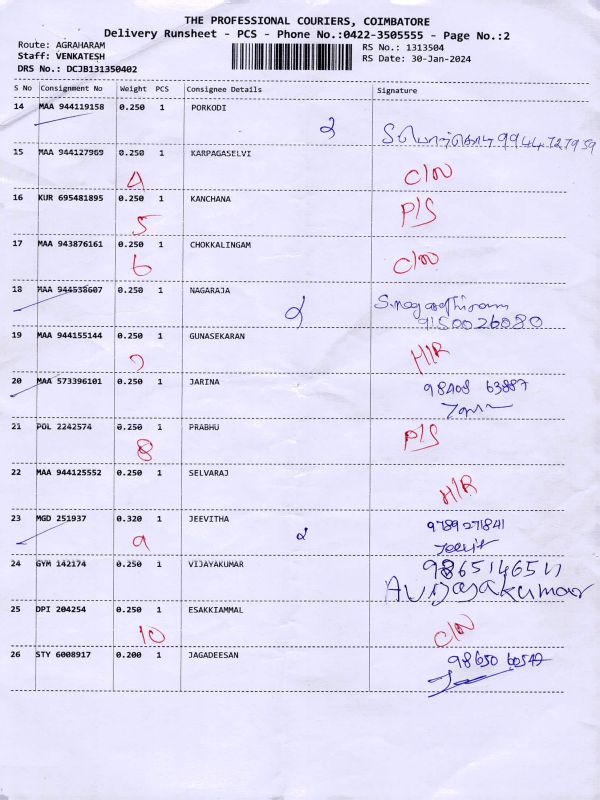 THE PROFESSIONAL COURIERS, COIMBATORE
Delivery Runsheet - PCS - Phone No.:0422-3505555 - Page No.:2
Route: AGRAHARAM
RS No.: 1313504
Staff: VENKATESH
RS Date: 30-Jan-2024
DRS No.: DCJB131350402
S No Consignment No Weight PCS Consignee Details Signature
14 MAA 944119158 0.250 1 PORKODI
2 9944727959
15 MAA 944127969 0.250 1 KARPAGASELVI
4 C/N
16 KUR 695481895 0.250 1 KANCHANA P/S
5
17 MAA 943876161 0.250 1 CHOKKALINGAM
6 C/N
18 MAA 944538607 0.250 1 NAGARAJA
2 9150026080
19 MAA 944155144 0.250 1 GUNASEKARAN
7 H/R
20 MAA 573396101 0.250 1 JARINA 98408 63887
21 POL 2242574 0.250 1 PRABHU P/S
8
22 MAA 944125552 0.250 1 SELVARAJ
H/R
23 MGD 251937 0.320 1 JEEVITHA 9789271841
9 2
24 GYM 142174 0.250 1 VIJAYAKUMAR
A Vijayakumar
25 DPI 204254 0.250 1 ESAKKIAMMAL
10 C/N
26 STY 6008917 0.200 1 JAGADEESAN 98650 60549